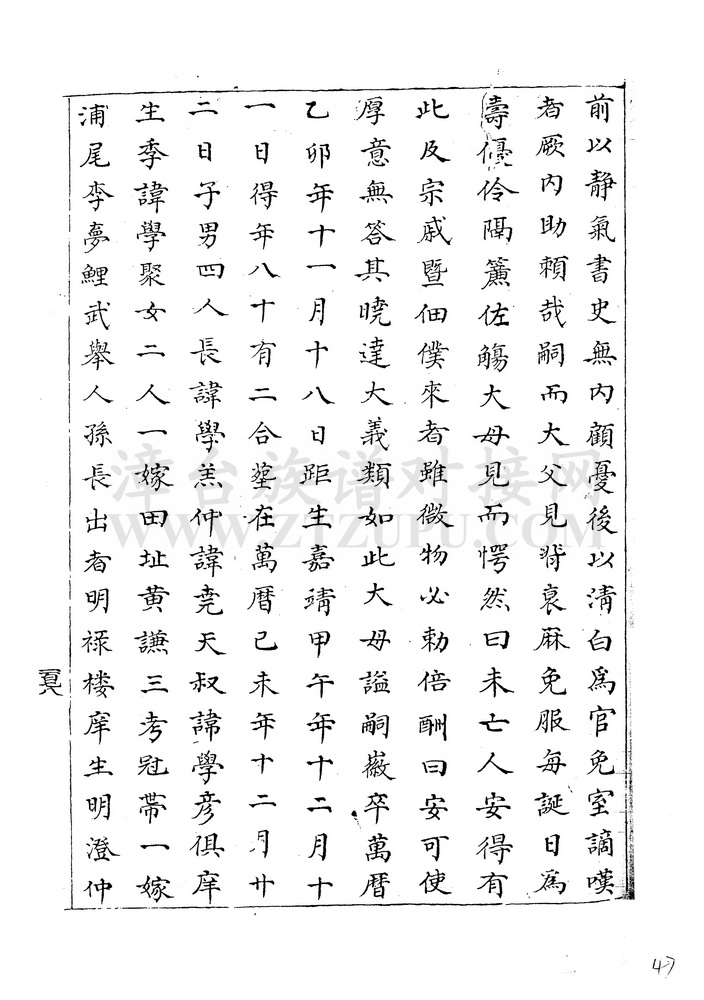 前以靜氣書史無內顧憂後以淸白爲官免室謫嘆
者厥內助頼哉嗣而大父見背衰麻免服每誕日爲
壽優伶隔簾佐觴大母見而愕然曰未亡人安得有
此及宗戚暨佃僕來者雖微物必勅倍酬曰安可使
厚意無答其曉達大義類如此大母謚嗣嶶卒萬曆
乙卯年十一月十八日距生嘉靖甲午年十二月十
一日得年八十有二合塟在萬曆己未年十二月廿
二日子男四人長諱學羔仲諱堯天叔諱學彥俱庠
生季諱學聚女二人一嫁田址黄謙三考冠帶一嫁
浦尾李夢鯉武舉人孫長出者明禄楼庠生明澄仲
百六
漳台族谱对接网
WWW.ZTZUPU.COM
47